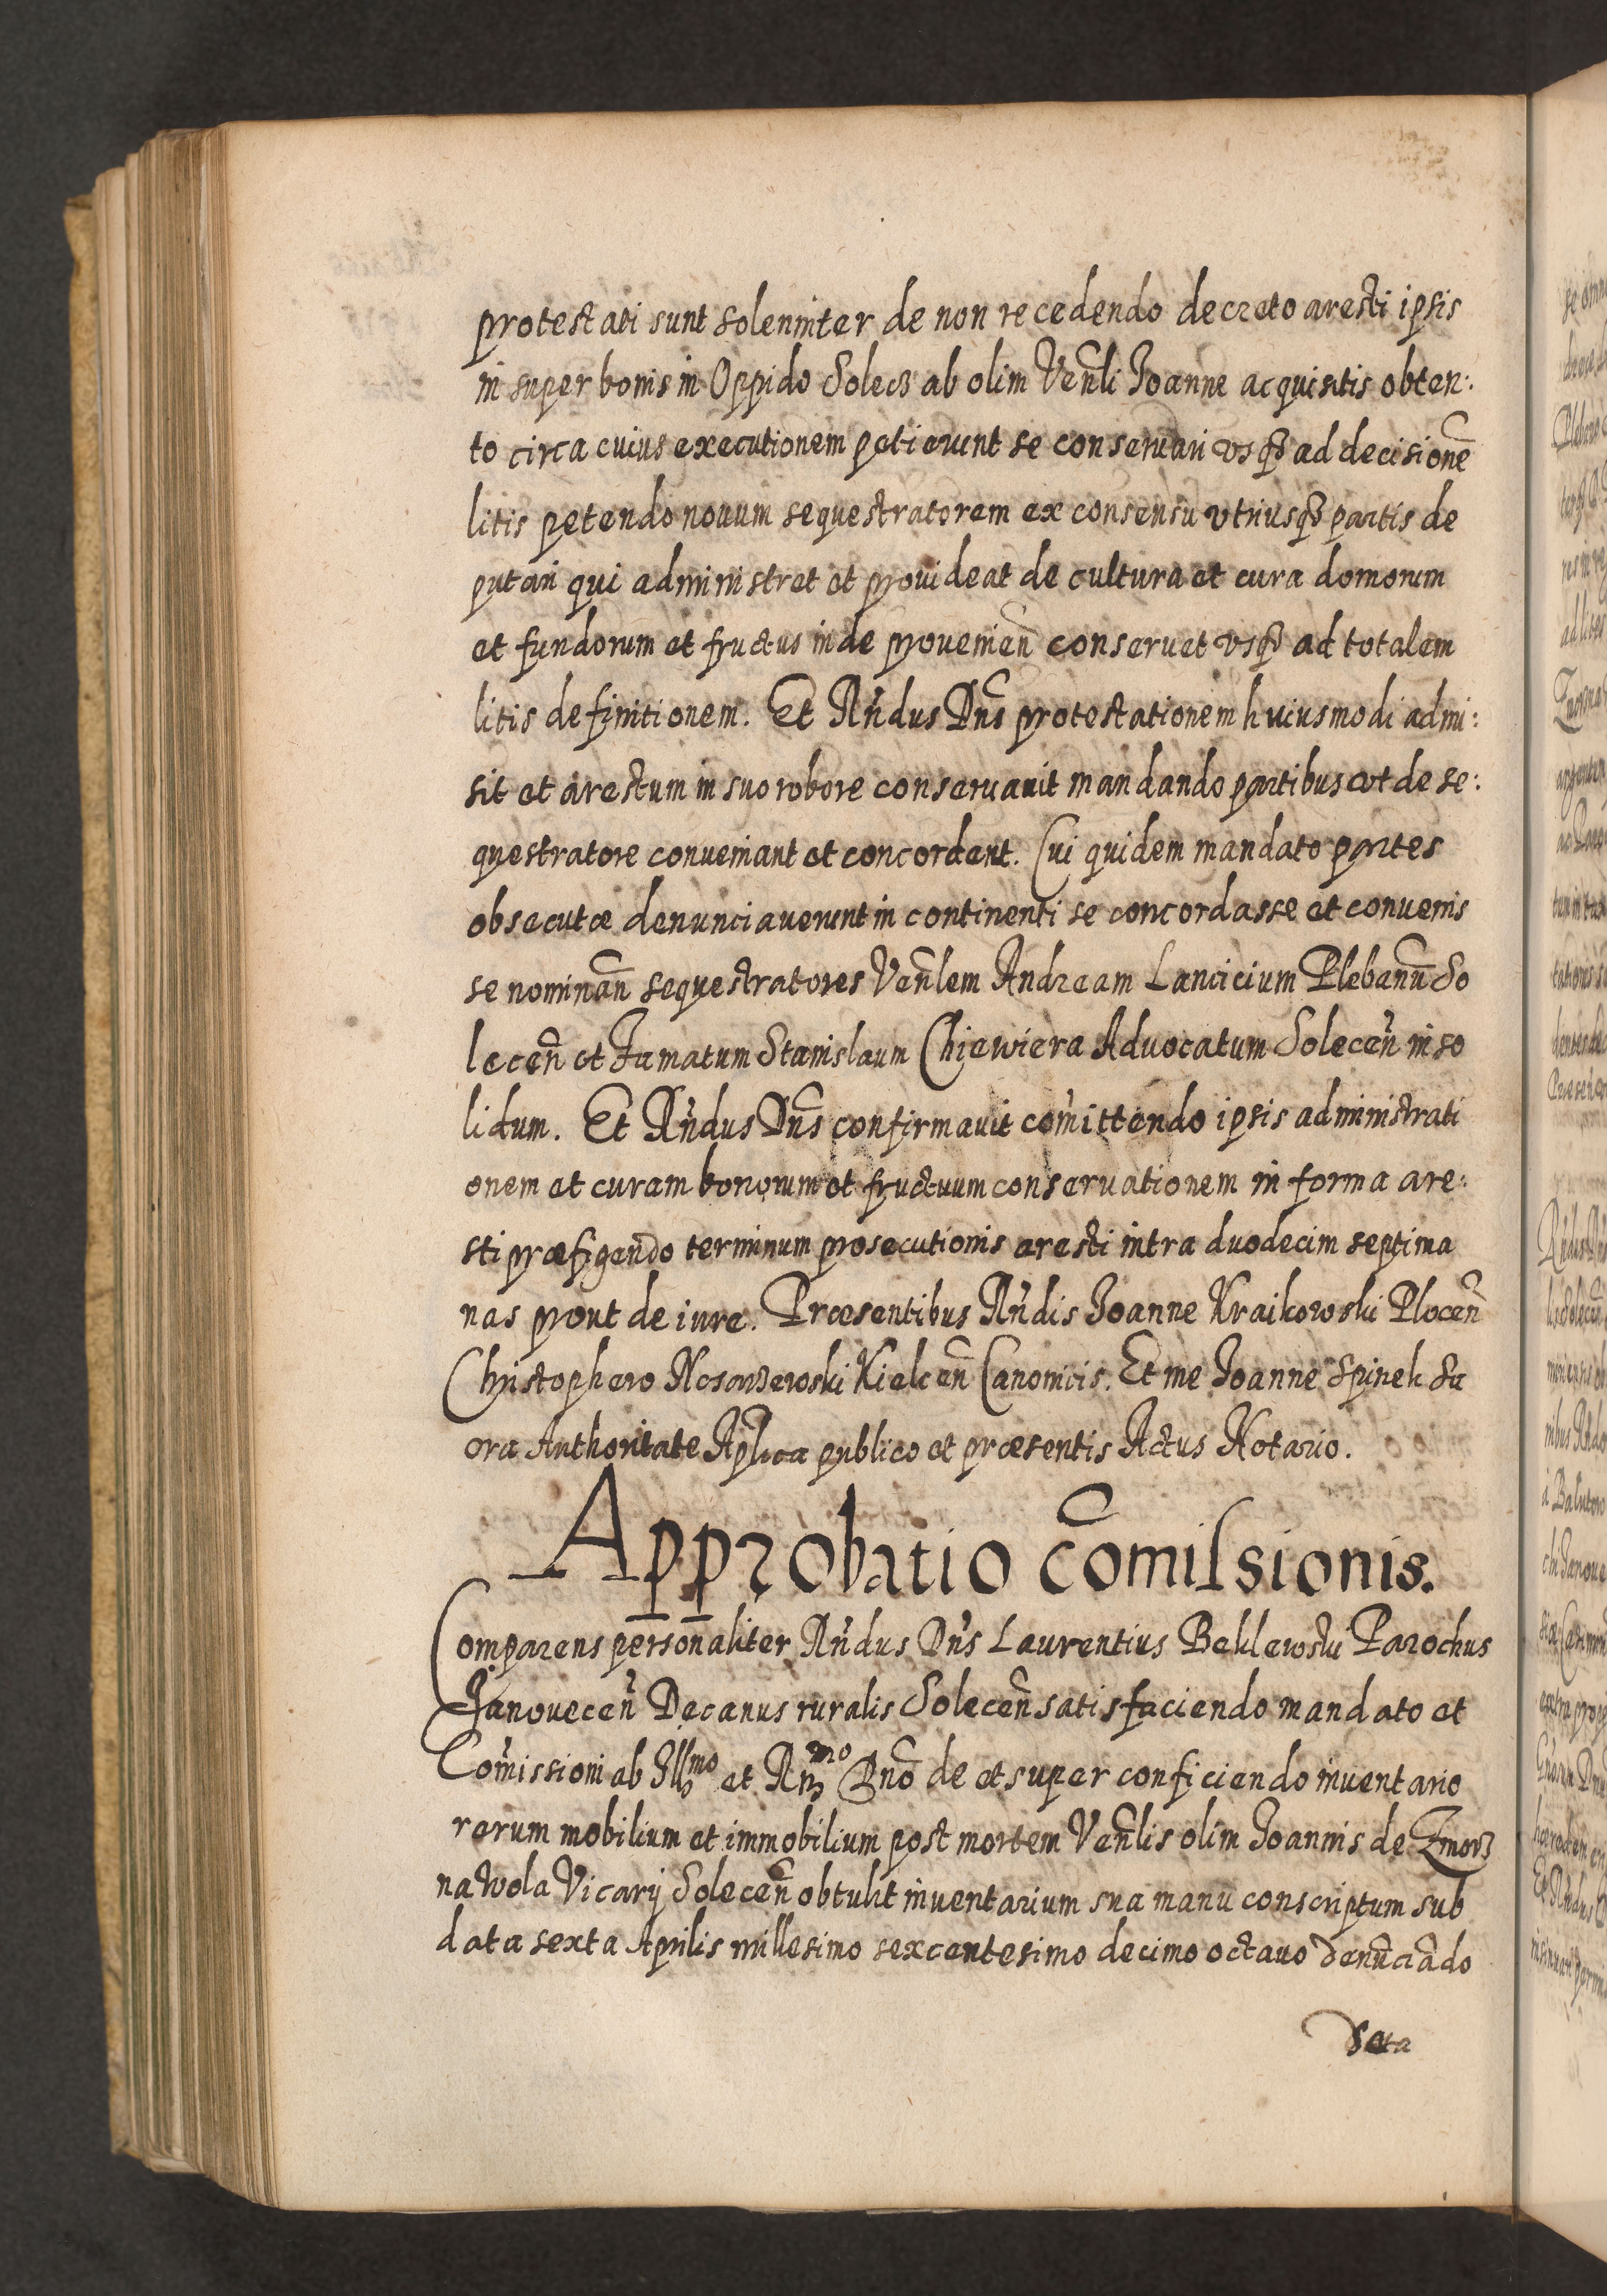 protestati sunt soleniniter de non recedendo decreto aresti ipsis
in super bonis in Oppido Solecz ab olim Ven̄li Joanne acquisitis obten:
to circa cuius executionem petierunt se conseruari vsq3 ad decisionē
litis petendo nouum sequestratorem ex consensu vtriusq3 partis de
putari qui administret et prouideat de cultura et cura domorum
et fundorum et fructus inde prouenien̄ conseruet vsq3 ad totalem
litis definitionem. Et Rn̄dus Dn̄s protestationem huiusmodi admi:
sit et arestum in suo robore conseruauit mandando partibus vt de se:
questratore conueniant et concordent. Cui quidem mandato partes
obsecutæ denunciauerunt in continenti se concordasse et conuenis
se nominan̄ sequestratores Ven̄lem Andream Lancicium Plebanū So
lecen̄ et Famatum Stanislaum Chiewiera Aduocatum Solecen̄ in so
lidum. Et Rn̄dus Dn̄s confirmauit com̄ittendo ipsis administrati
onem et curam bonorum et fructuum conseruationem in forma are:
sti præfigendo terminum prosecutionis aresti intra duodecim septima
nas prout de iure. Præsentibus Rn̄dis Joanne Kraikowski Plocen̄
Christophero Nosarzewski Kielcen̄ Canonicis. Et me Joanne Spinek Sa
cra Authoritate Ap̄lica publico et præsentis Actus Notario.
Approbatio com̄issionis.
Comparens personaliter Rn̄dus Dn̄s Laurentius Beklewski Parochus
Janouecen̄ Decanus ruralis Solecen̄ satisfaciendo mandato et
Com̄issioni ab Ill3mo et Rn3mo Dn̄o de et super conficiendo inuentario
rerum mobilium et immobilium post mortem Ven̄lis olim Joannis de Zmorz
na Wola Vicarij Solecen̄ obtulit inuentarium sua manu conscriptum sub
data sexta Aprilis millesimo sexcentesimo decimo octauo denūciādo